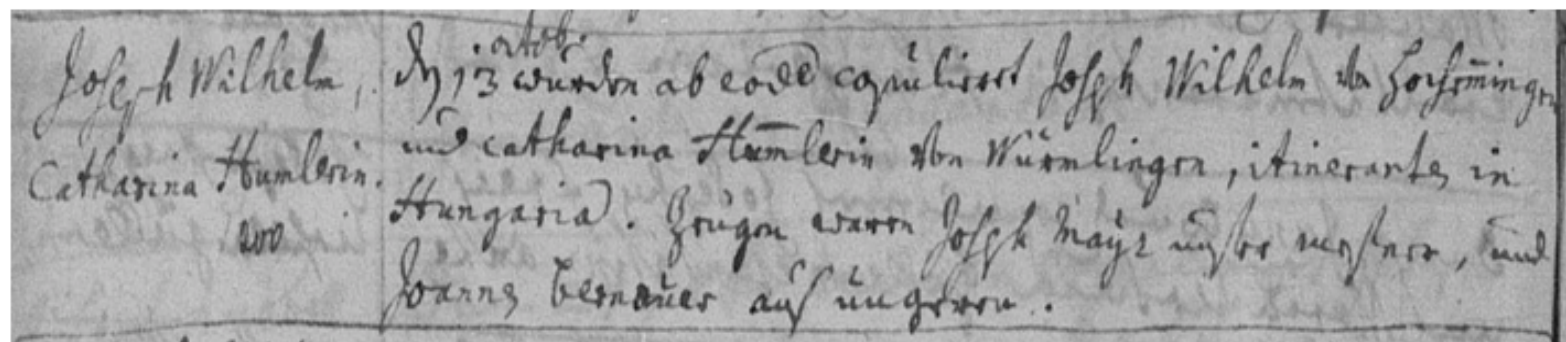 Joseph Wilhelm,
Catharina Humlerin.
octob:
dz 13 wurden ab eodē copulirt Joseph Wilhelm von Hochem̄ingen
und Catharina Hum̄lerin von Wurmlingen, itinerantes in
Hungaria. Zeugen waren Joseph Mayr unser messner, und
Joannes Bernauer auß ungeren.